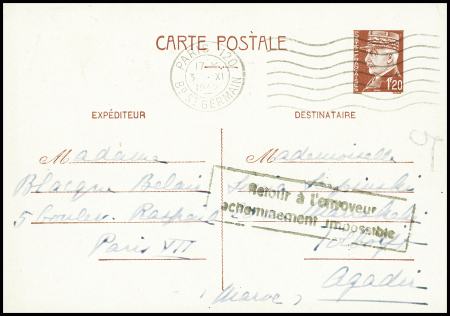 CARTE POSTALE
PARIS 120
17
3 - XI
1942
Bd ST GERMAIN
1.20
EXPÉDITEUR
DESTINATAIRE
Madame
Mademoiselle
Blacque Belair
5 boulev. Raspail
Retour à l'envoyeur
acheminement impossible
Paris VII
Agadir
(Maroc)